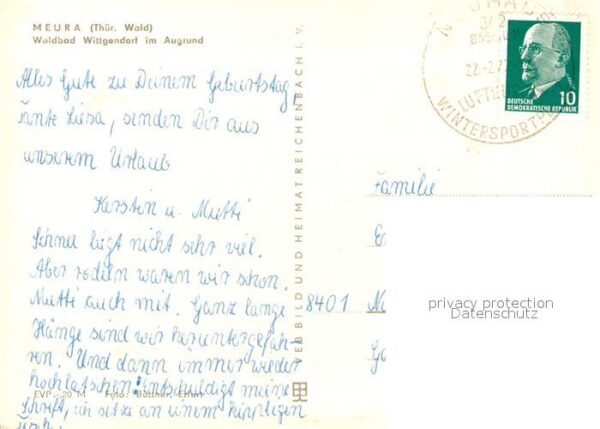 MEURA (Thür. Wald)
Waldbad Wittgendorf im Augrund
Alles Gute zu Deinem Geburtstag,
Tante Liesa, senden Dir aus
unserem Urlaub
Kerstin u. Mutti
Schnee liegt nicht sehr viel.
Aber rodeln waren wir schon.
Mutti auch mit. Ganz lange
Hänge sind wir heruntergefah-
ren. Und dann immer wieder
hochlatschen! Entschuldigt meine
Schrift, ich sitze an einem kippligen
Tisch.
EVP -20 M Foto: Büttner, Erfurt
VEB BILD UND HEIMAT REICHENBACH I. V.
22.-2.7
LUFTKU
WINTERSPORTPL
DEUTSCHE
DEMOKRATISCHE REPUBLIK
10
Familie
8401
privacy protection
Datenschutz